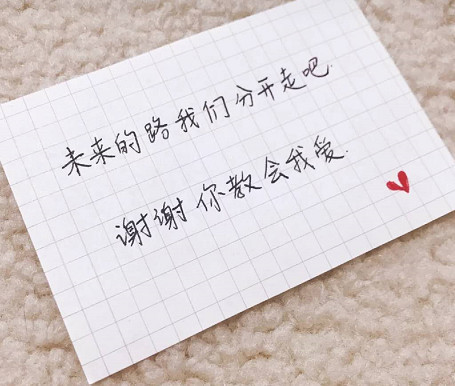 未来的路我们分开走吧.
谢谢你教会我爱.